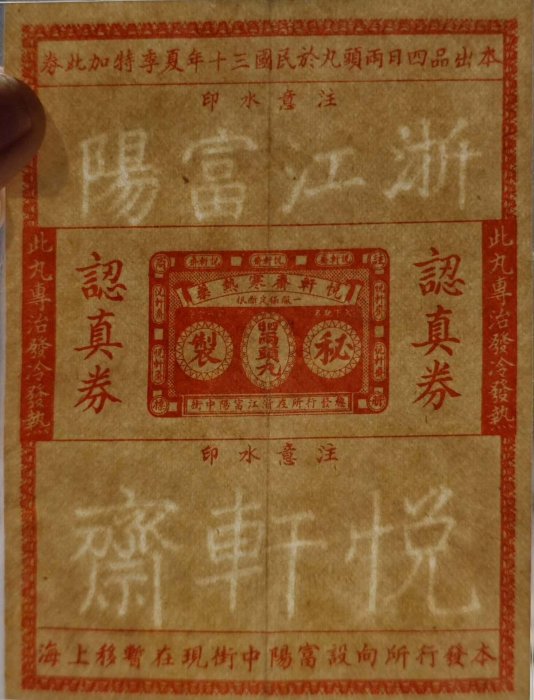 本出品四日兩頭丸於民國三十年夏季特加此券
注意水印
浙江富陽
此丸專治發冷發熱
認真券
悅軒齋寒熱藥
秘
四日兩頭丸
製
總發行所在浙江富陽中街
認真券
此丸專治發冷發熱
注意水印
悅軒齋
本發行所向設富陽中街現在暫移上海